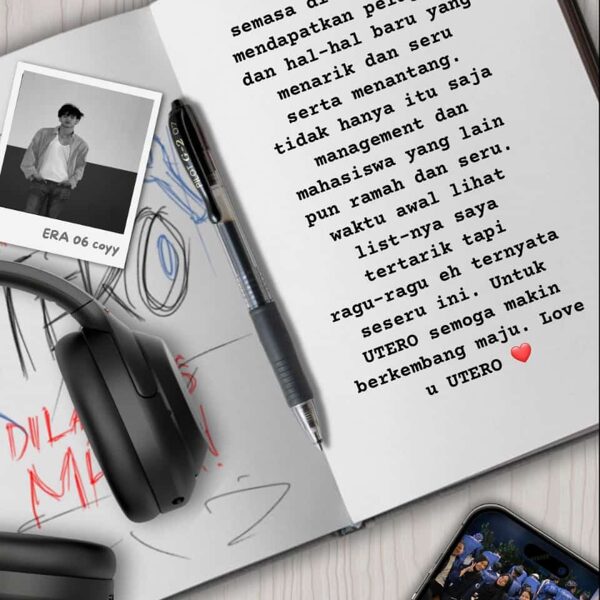 semasa di
mendapatkan
dan hal-hal baru yang
menarik dan seru
serta menantang.
tidak hanya itu saja
management dan
mahasiswa yang lain
pun ramah dan seru.
waktu awal lihat
list-nya saya
tertarik tapi
ragu-ragu eh ternyata
seseru ini. Untuk
UTERO semoga makin
berkembang maju. Love
u UTERO ❤️
ERA 06 coyy
PILOT G-2 07